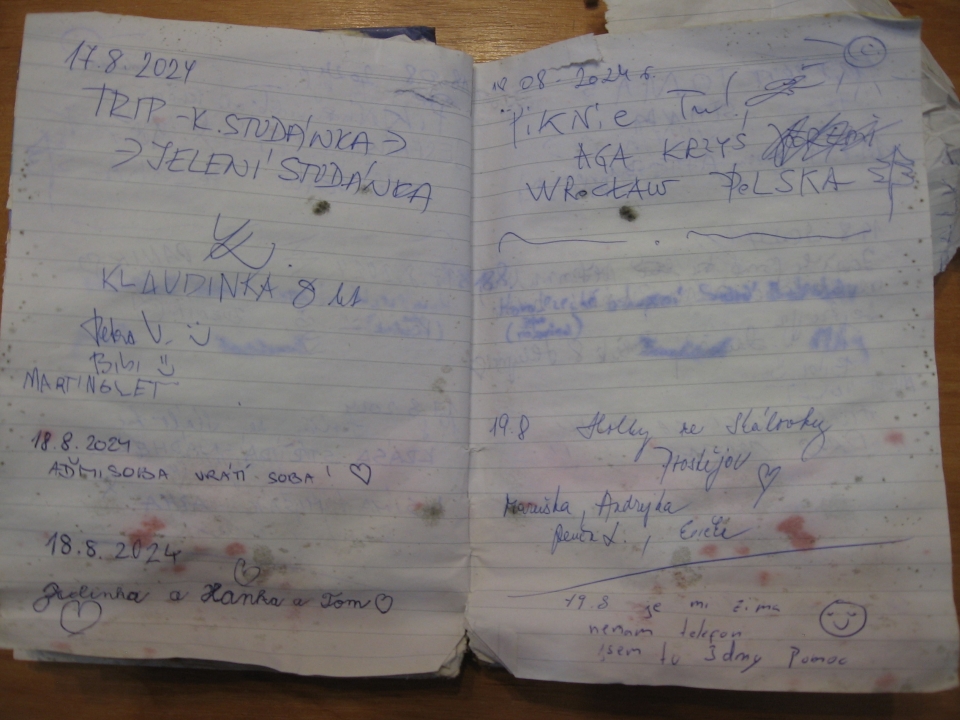 17.8.2024
TRIP - K. STUDÁNKA →
→ JELENÍ STUDÁNKA
KLAUDINKA 8 let
Petra V.
Bibi
MARTIN 6 LET
18.8.2024
AŤ MI SOBA VRÁTÍ SOBA!
18.8.2024
a Hanka a Tom
08-2024 r.
PiKNiC TU!
AGA KRZYŚ
WROCŁAW POLSKA
19.8 Holky ze Skálovky
Prostějov
Maruška, Andrejka
19.8 je mi zima
nemam telefon
jsem tu 3 dny Pomoc